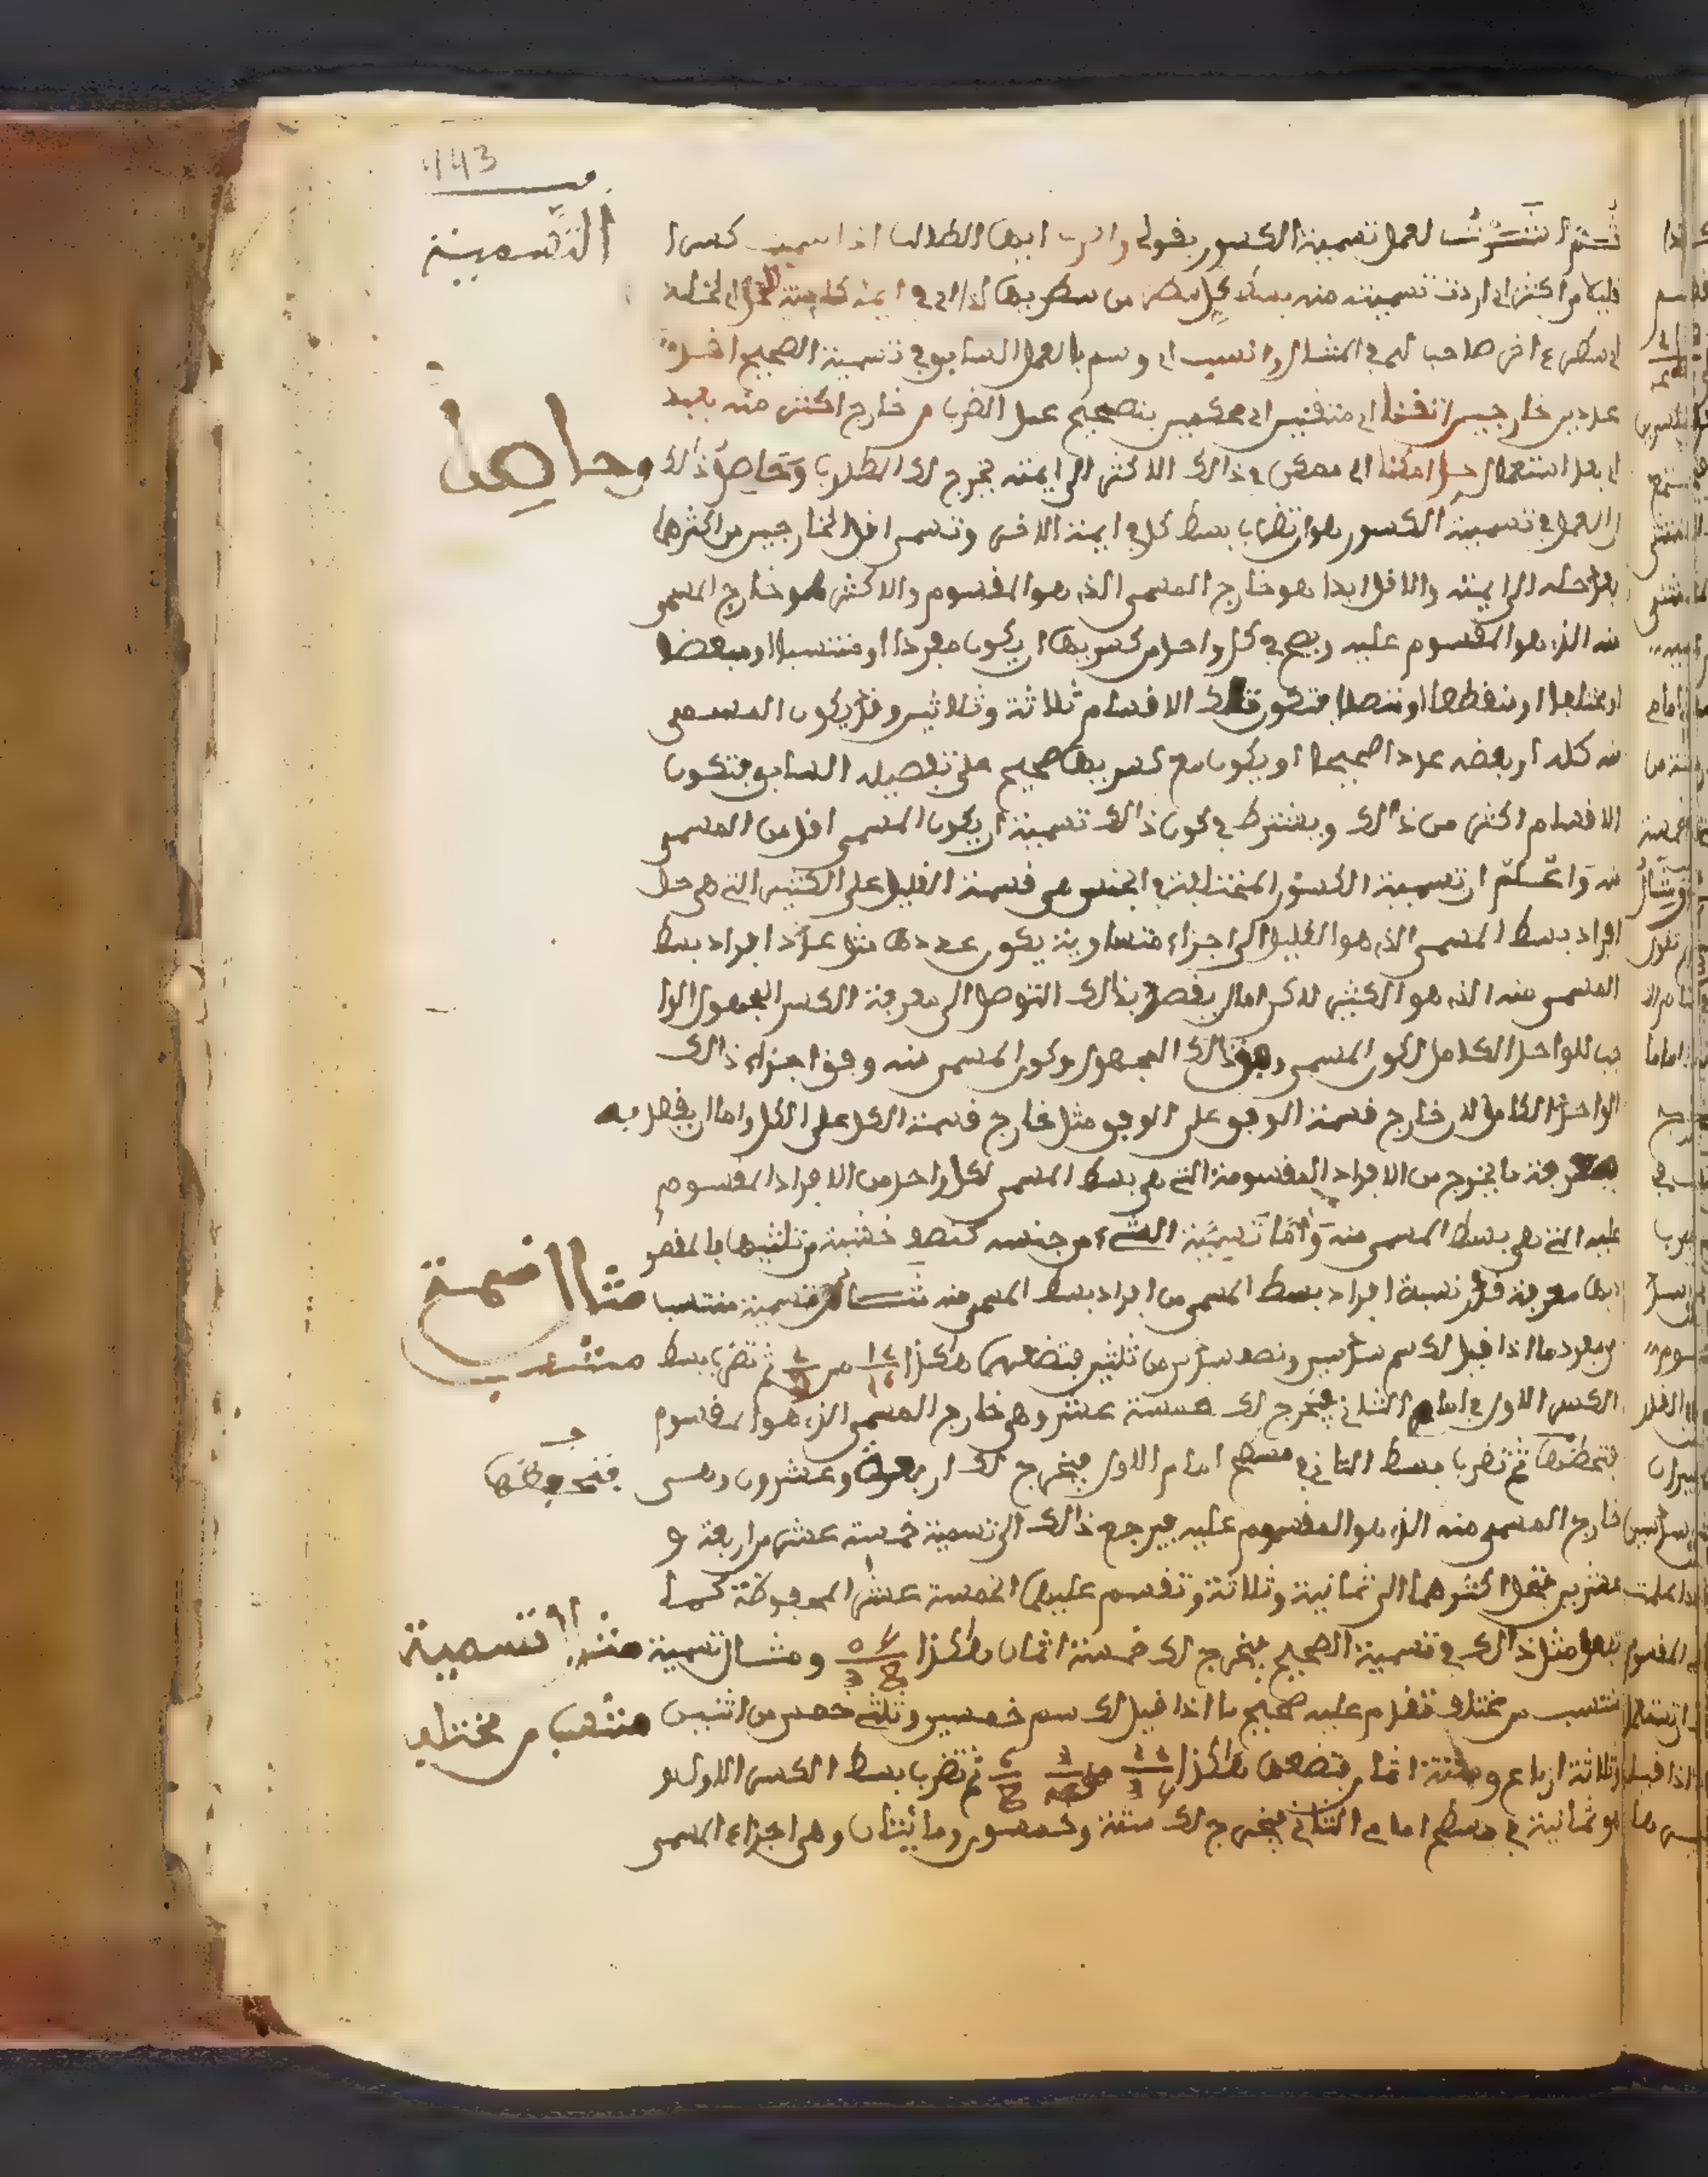 143
التسمية
ثم اشرت لعمل تسمية الكسور بقولي واضرب ايها الطالب اذا سميت كسرا
قليلا من اكثر اي اردت تسميته منه بسط كل سطر من سطريهما
لسطر اخر صاحب لهم في المثال وانسب اي وسم بالعمل السابق في تسمية الصحيح اقل
عددين خارجين اتفقا اي متفقين اي محكمين بتصحيح عمل الضرب من خارج اكثر منه بعيد
اي بعد استعمال حل امكنا اي ممكن في ذالك الاكثر الى ايمته يخرج لك المطلوب وحاصل ذالك
وحاصل
ان العمل في تسمية الكسور هو ان تضرب بسط كل في ايمة الاخر وتسمي اقل الخارجين من اكثرهما
بعد حله الى ايمته والاقل ابدا هو خارج المسمى الذي هو المقسوم والاكثر هو خارج المسمى
منه الذي هو المقسوم عليه ويصح في كل واحد من كسريهما ان يكون مفردا او منتسبا او مبعضا
او مختلفا او منقطعا او متصلا فتكون تلك الاقسام ثلاثة وثلاثين وقد يكون المسمى
منه كله او بعضه عددا صحيحا او يكون مع كسريهما صحيح على تفصيله السابق فتكون
الاقسام اكثر من ذالك ويشترط في كون ذالك تسمية ان يكون المسمى اقل من المسمى
منه واعلم ان تسمية الكسور المختلفة في الجنس هي قسمة القليل على الكثير التي هي حل
افراد بسط المسمى الذي هو القليل الى اجزاء متساوية يكون عددها مثل عدد افراد بسط
المسمى منه الذي هو الكثير لاكن اما ان يقصد بذالك التوصل الى معرفة الكسر المجهول الوا
جب للواحد الكامل لكون المسمى وفق ذالك المجهول وكون المسمى منه وفق اجزاء ذالك
الواحد الكامل لان خارج قسمة الوفق على الوفق مثل خارج قسمة الكل على الكل واما ان يقصد به
معرفة ما يخرج من الافراد المقسومة التي هي بسط المسمى لكل واحد من الافراد المقسوم
عليه التي هي بسط المسمى منه واما تسمية الشيء من جنسه كنصف خشبة من ثلثيها فالمقصو
د بها معرفة قدر نسبة افراد بسط المسمى من افراد بسط المسمى منه مثال تسمية منتسبا
مثال قسمة
من مفرد ما اذا قيل لك سم سدسين ونصف سدس من ثلثين فتضعهما هكذا ثم تضرب بسط
منتسب
الكسر الاول في امام الثاني فيخرج لك خمسة عشر وهي خارج المسمى الذي هو المقسوم
فتحفظها ثم تضرب بسط الثاني في مسطح امام الاول فيخرج لك اربعة وعشرون وهي
فتحفظها
خارج المسمى منه الذي هو المقسوم عليه فيرجع ذالك الى تسمية خمسة عشر من اربعة و
عشرين فتحل اكثرهما الى ثمانية وثلاثة وتقسم عليهما الخمسة عشر المحفوظة كما
تفعل مثل ذالك في تسمية الصحيح فيخرج لك خمسة اثمان هكذا ومثال تسمية
مثال تسمية
منتسب من مختلف تقدم عليه صحيح ما اذا قيل لك سم خمسين وثلثي خمس من اثنين
منتسب من مختلف
وثلاثة ارباع وستة اثمان فتضعها هكذا ثم تضرب بسط الكسر الاول و
هو ثمانية في مسطح امامي الثاني فيخرج لك ستة وخمسون ومائتان وهي اجزاء المسمى